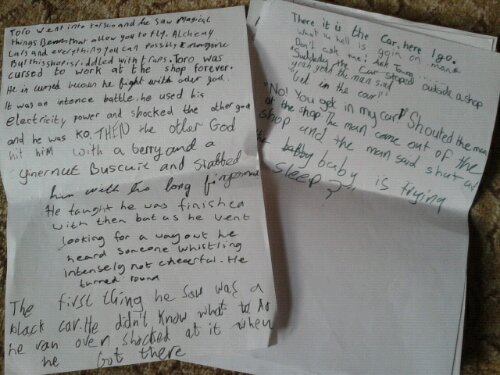 Toro went into tolsco and he saw magical
things Beans that allow you to fly. Alchemy
Labs and everything you can possibly e imagine
But this shop is riddled with traps. Toro was
cursed to work at the shop forever.
He is cursed because he fought with other god.
It was an intence battle. he used his
electricity power and shocked the other god
and he was KO. THEN the other God
hit him with a berry and a
Ynernut Buscuit and Stabbed
him with his long fingernail
He taught he was finished
with then but as he went
looking for a way out he
heard someone whistling
intensely not cheerful. He
turned round
The first thing he saw was a
black car. He didn't know what to do
he ran over shocked at it when
he got there
There it is the car. here I go.
What the hell is goin on man
Don't ask me! hot
Suddenly the car stoped outside a shop
yeah yeah the man said
Get in the car"
"No! You get in my car" Shouted the man
at the shop The man came out of the
shop and the man said shut up
the babby baby is trying
sleep?